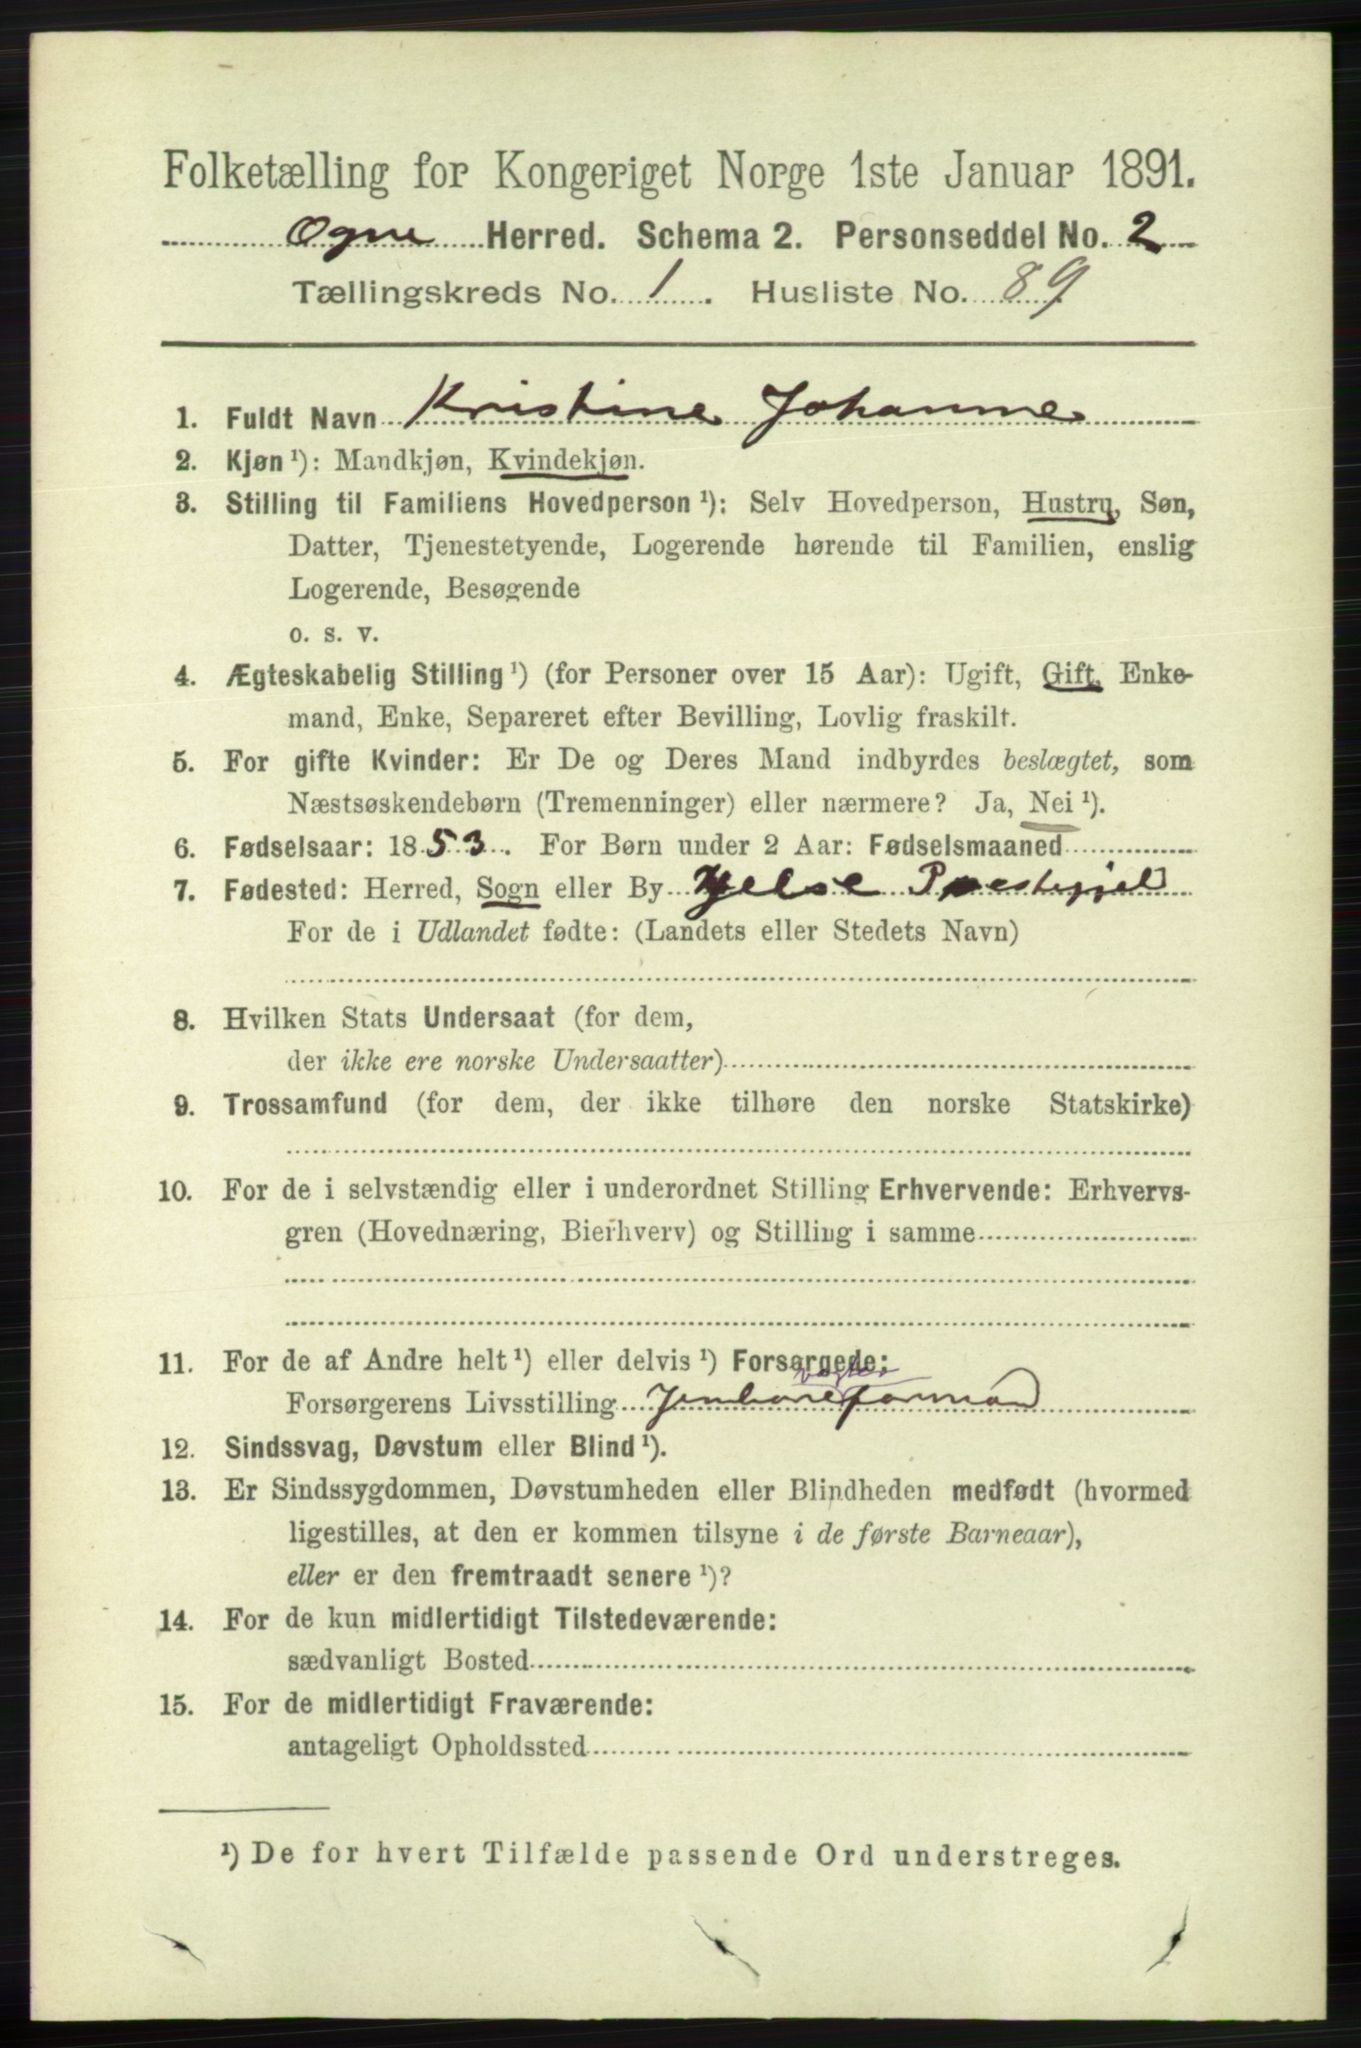 Folketælling for Kongeriget Norge 1ste Januar 1891.
Ogne Herred. Schema 2. Personseddel No. 2
Tællingskreds No. 1. Husliste No. 89
1. Fuldt Navn Kristine Johanne
2. Kjøn ¹): Mandkjøn, Kvindekjøn.
3. Stilling til Familiens Hovedperson ¹): Selv Hovedperson, Hustru, Søn,
Datter, Tjenestetyende, Logerende hørende til Familien, enslig
Logerende, Besøgende
o. s. v.
4. Ægteskabelig Stilling ¹) (for Personer over 15 Aar): Ugift, Gift, Enke-
mand, Enke, Separeret efter Bevilling, Lovlig fraskilt.
5. For gifte Kvinder: Er De og Deres Mand indbyrdes beslægtet, som
Næstsøskendebørn (Tremenninger) eller nærmere? Ja, Nei ¹).
6. Fødselsaar: 1853. For Børn under 2 Aar: Fødselsmaaned
7. Fødested: Herred, Sogn eller By Jelse Prestegjel
For de i Udlandet fødte: (Landets eller Stedets Navn)
8. Hvilken Stats Undersaat (for dem,
der ikke ere norske Undersaatter)
9. Trossamfund (for dem, der ikke tilhøre den norske Statskirke)
10. For de i selvstændig eller i underordnet Stilling Erhvervende: Erhvervs-
gren (Hovednæring, Bierhverv) og Stilling i samme
11. For de af Andre helt ¹) eller delvis ¹) Forsørgede:
vogter
Forsørgerens Livsstilling Jernbaneformand
12. Sindssvag, Døvstum eller Blind ¹).
13. Er Sindssygdommen, Døvstumheden eller Blindheden medfødt (hvormed
ligestilles, at den er kommen tilsyne i de første Barneaar),
eller er den fremtraadt senere ¹)?
14. For de kun midlertidigt Tilstedeværende:
sædvanligt Bosted
15. For de midlertidigt Fraværende:
antageligt Opholdssted
¹) De for hvert Tilfælde passende Ord understreges.